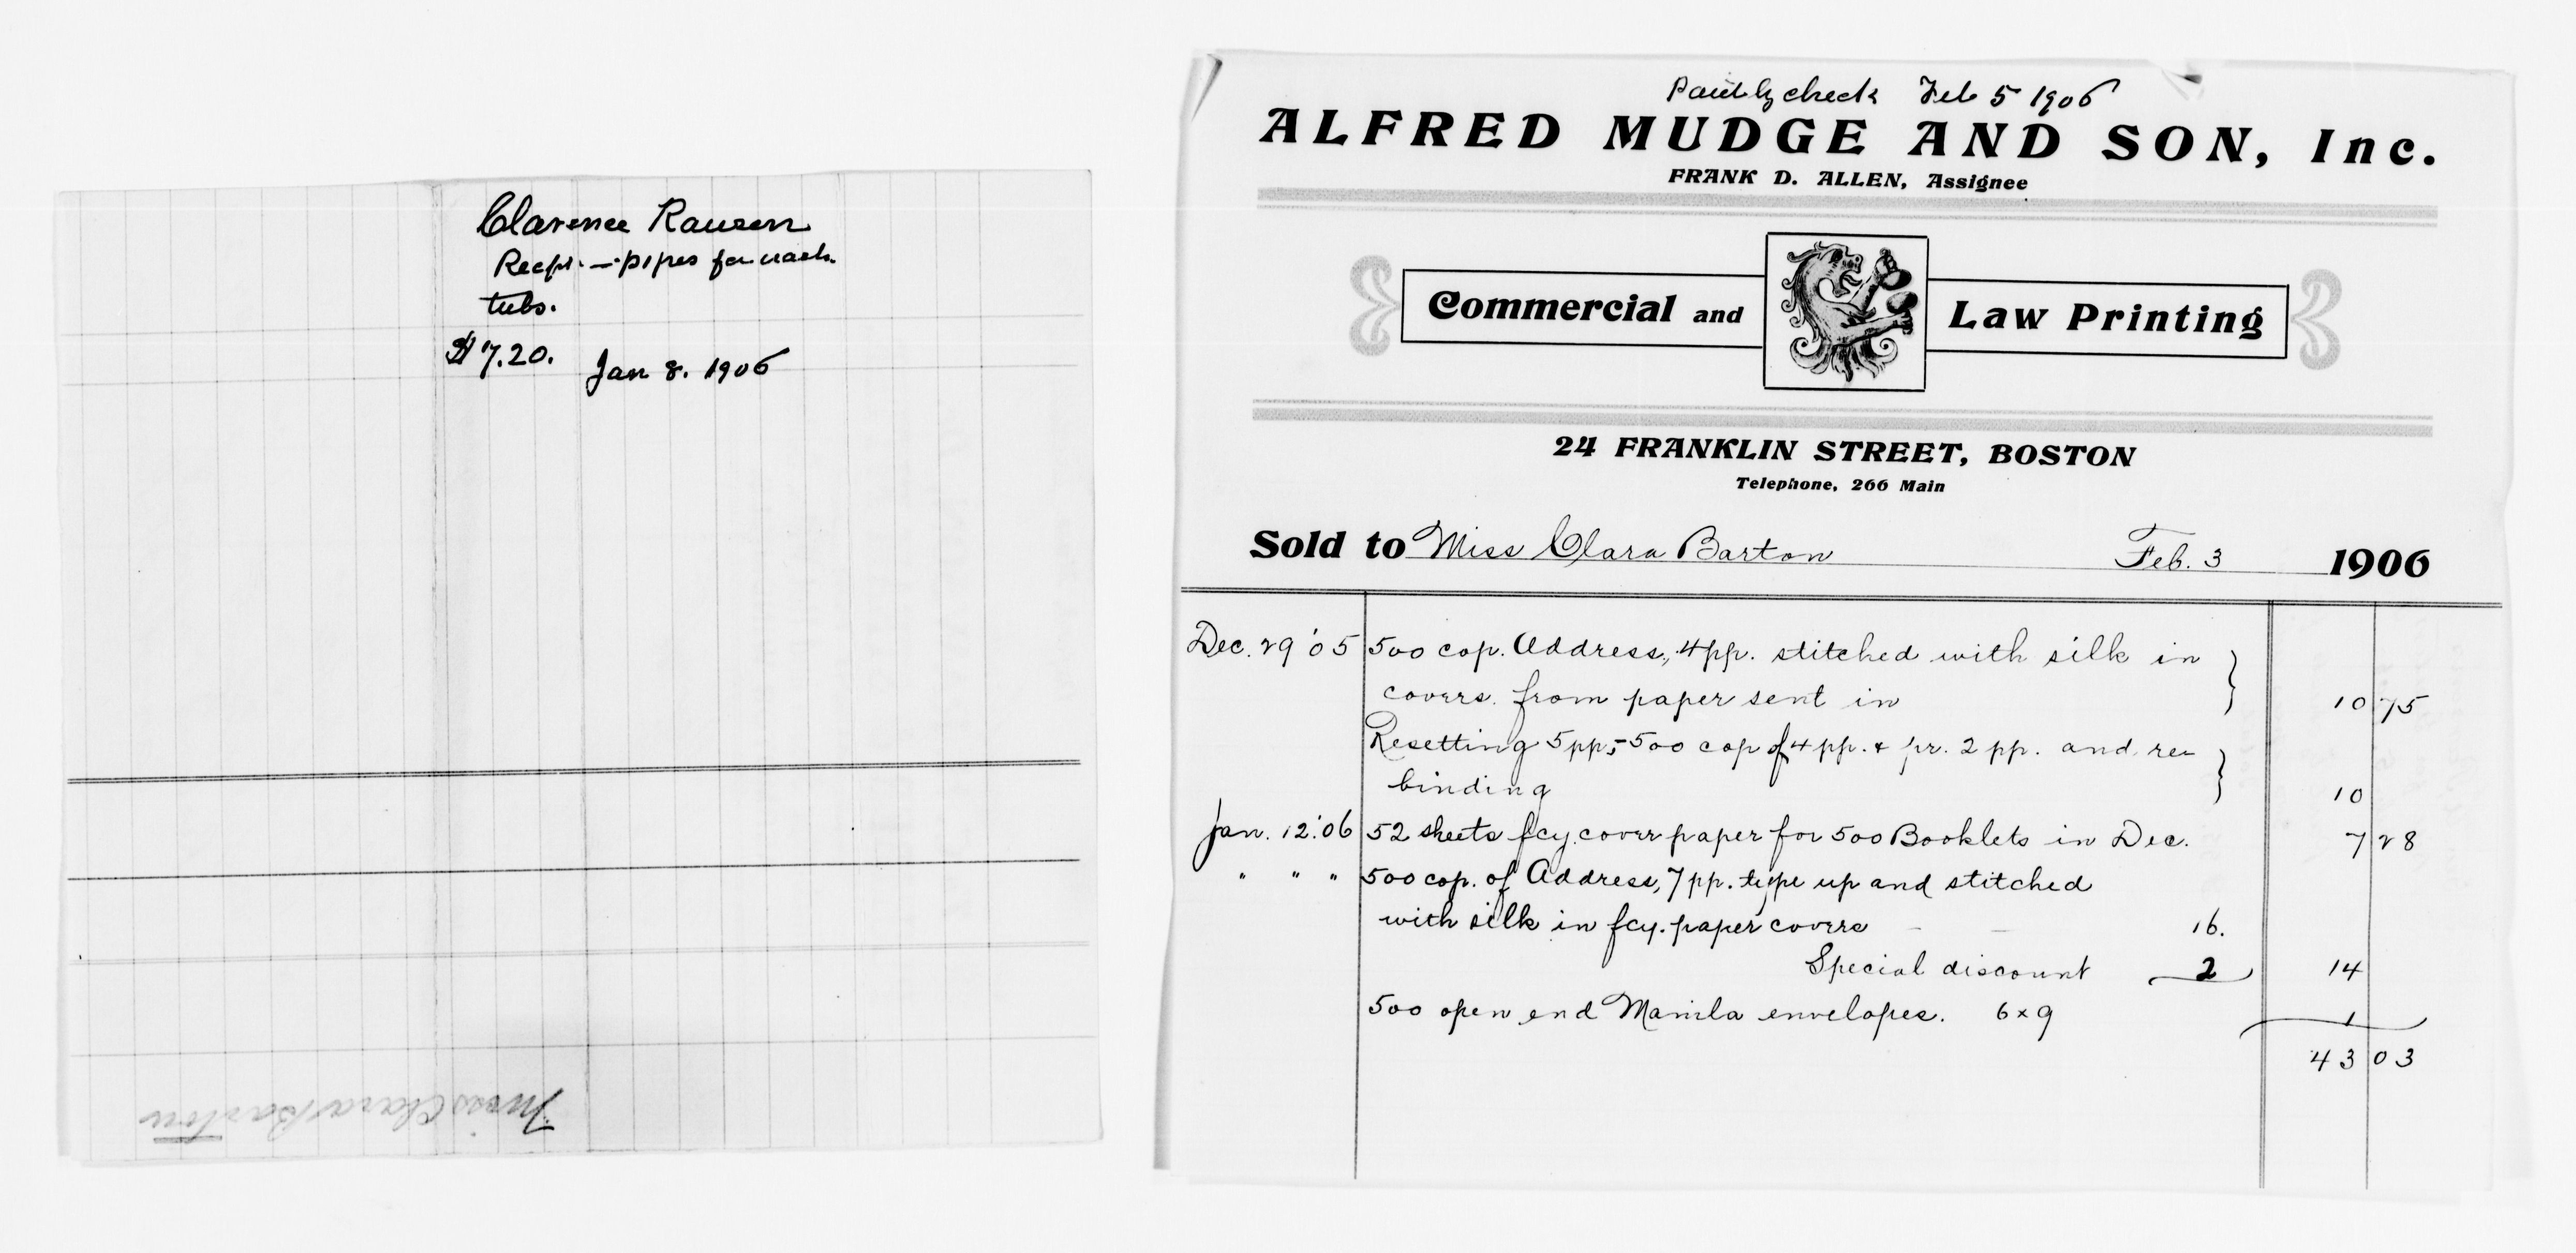 Clarence Rausen
Recpt. — pipes for wash
tubs.
$7.20. Jan 8. 1906
Miss Clara Barton
Paid by check Feb 5 1906
ALFRED MUDGE AND SON, Inc.
FRANK D. ALLEN, Assignee
Commercial and Law Printing
24 FRANKLIN STREET, BOSTON
Telephone, 266 Main
Sold to Miss Clara Barton Feb. 3 1906
Dec. 29 '05 500 cop. Address, 4pp. stitched with silk in
covers from paper sent in 10 75
Resetting 5pp, 500 cop of 4 pp. & pr. 2 pp. and re
binding 10
Jan. 12 '06 52 sheets fcy. cover paper for 500 Booklets in Dec. 7 28
" " " 500 cop. of Address, 7 pp. type up and stitched
with silk in fcy. paper covers 16.
Special discount 2 14
500 open end Manila envelopes. 6 x 9 1
43 03